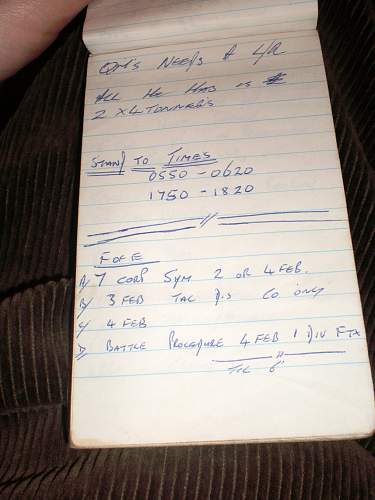 QM's NEEDS A L/R
ALL HE HAS IS
2 X 4 TONNERS
STAND TO TIMES
0550 - 0620
1750 - 1820
A) 7 CORP SYM 2 OR 4 FEB.
B) 3 FEB TAC CO ONLY
C) 4 FEB
D) BATTLE PROCEDURE 4 FEB 1 DIV FTX